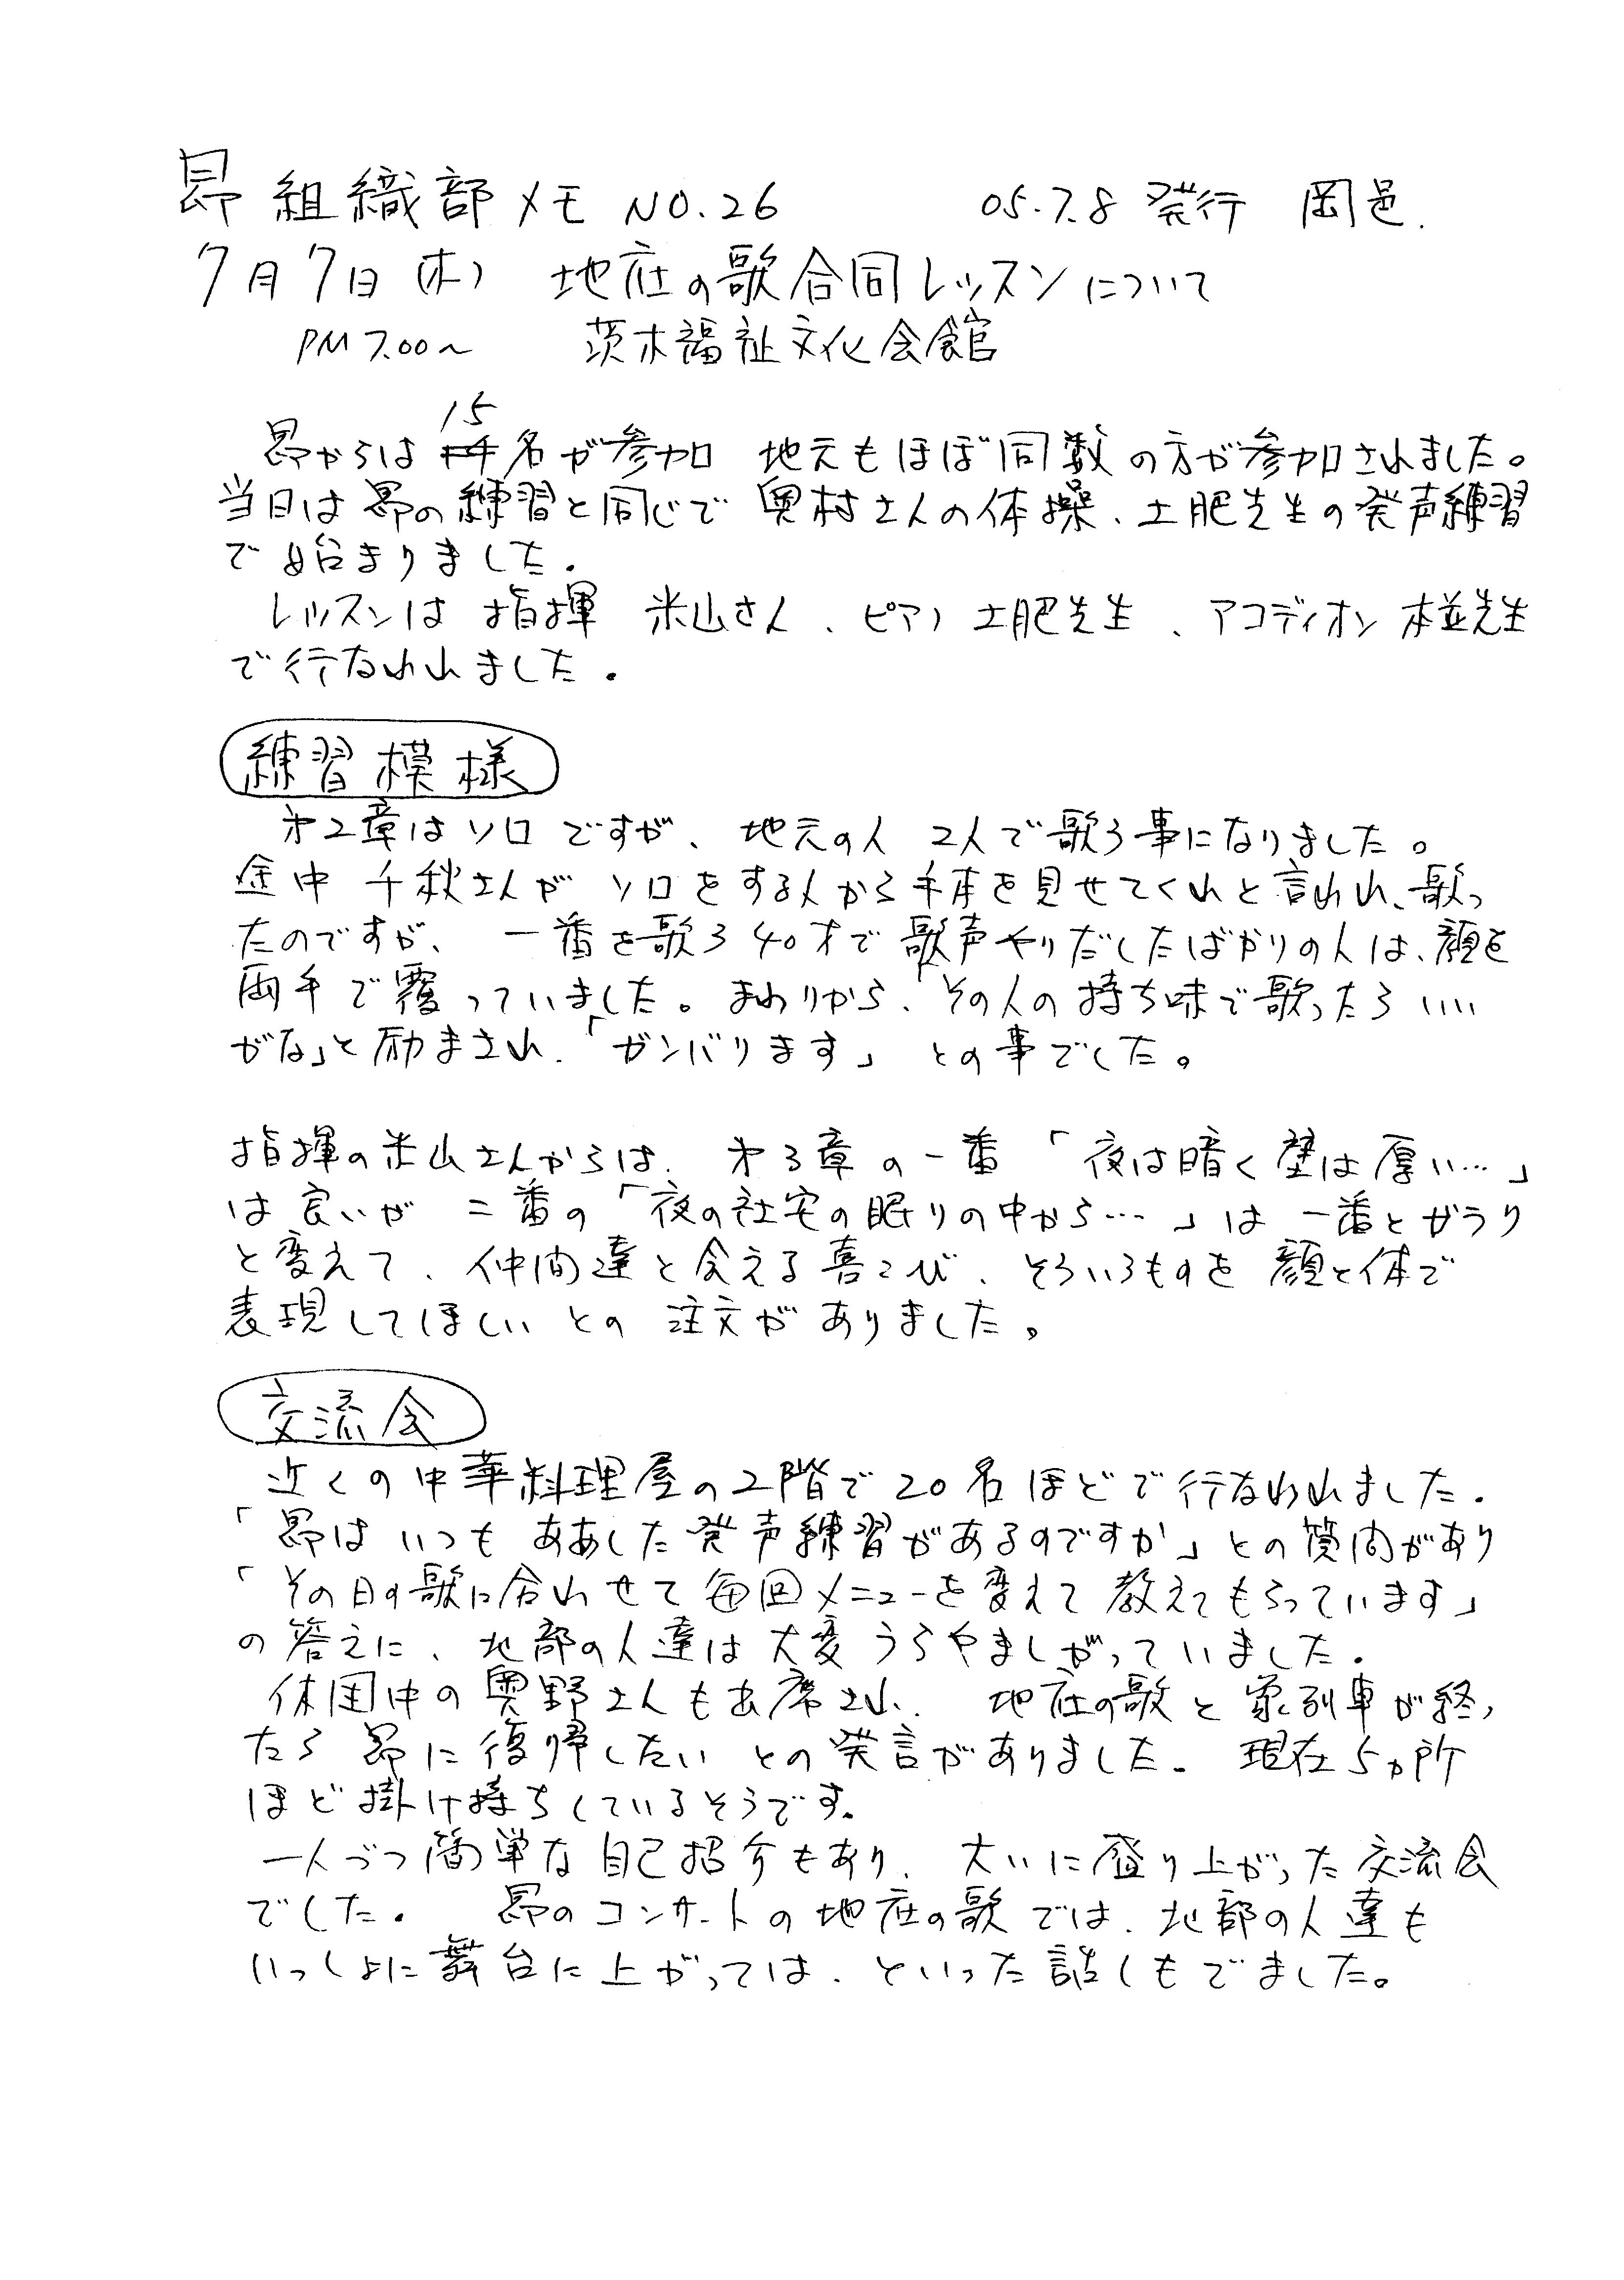 昴 組織部メモ NO.26 05.7.8 発行 岡邑.
7月7日(木) 地底の歌合同レッスンについて
PM7.00〜 茨木福祉文化会館
15
昴からは 名が参加 地元もほぼ同数の方が参加されました。
当日は昴の練習と同じで 奥村さんの体操、土肥先生の発声練習
で始まりました.
レッスンは 指揮 米山さん、ピアノ 土肥先生 、アコディオン 本並先生
で行なわれました.
練習模様
第2章はソロ ですが、地元の人 2人で歌う事になりました。
途中 千秋さんが ソロをする人から手本を見せてくれと言われ、歌っ
たのですが、 一番を歌う 40才で歌声やりだしたばかりの人は、顔を
両手で覆っていました。まわりから、「その人の持ち味で歌ったらいい
がな」と励まされ、「ガンバリます」 との事でした。
指揮の米山さんからは、 第3章の一番 「夜は暗く壁は厚い…」
は良いが 二番の「夜の社宅の眠りの中から…」は 一番とガラリ
と変えて、仲間達と会える喜こび、そういうものを 顔と体で
表現してほしい との 注文がありました。
交流会
近くの中華料理屋の2階で20名ほどで行なわれました.
「昴は いつも ああした発声練習があるのですか」との質問があり
「その日の歌に合わせて毎回メニューを変えて 教えてもらっています」
の答えに、北部の人達は大変うらやましがっていました.
休団中の奥野さんも出席され、 地底の歌と 象列車が終っ
たら 昴に復帰したい との発言がありました. 現在5ヵ所
ほど掛け持ちしているそうです。
一人づつ簡単な自己招介もあり、 大いに盛り上がった交流会
でした. 昴のコンサートの地底の歌では、北部の人達も
いっしょに舞台に上がっては、といった話しもでました。